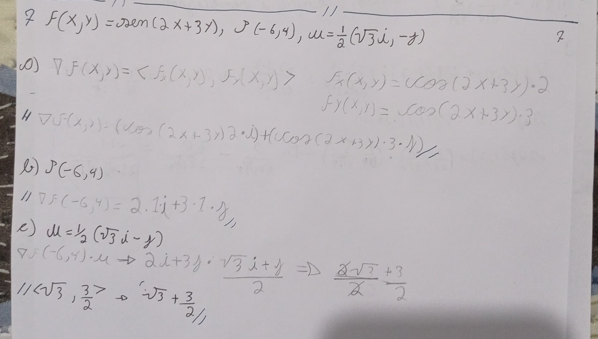 7 f(x,y) = sen(2x+3y), P(-6,4), u = 1/2 (√3i, -j) 7
a) ∇f(x,y) = <fx(x,y), fx(x,y)> fx(x,y) = cos(2x+3y)•2
fy(x,y) = cos(2x+3y)•3
// ∇f(x,y) = (cos(2x+3y)2•i)+(cos(2x+3y)•3•j)//
b) P(-6,4)
// ∇f(-6,4) = 2.1i+3.1.j//
c) u = 1/2 (√3i-j)
∇f(-6,4)•u → 2i+3j • √3i+j/2 ⇒ 2√3/2 +3/2
//<√3, 3/2> → √3 + 3/2//